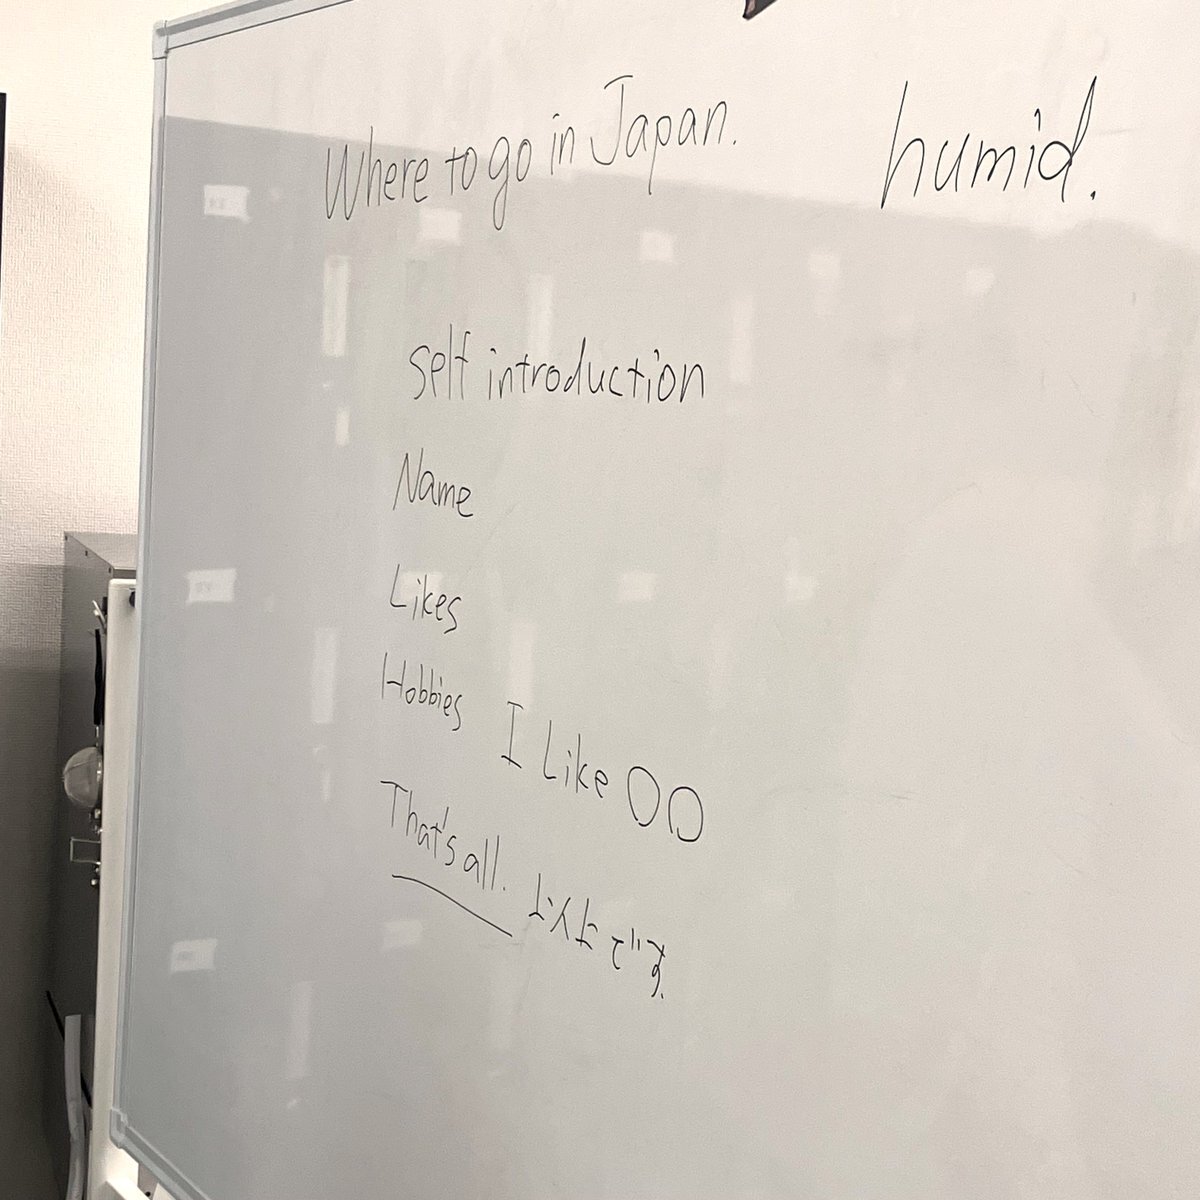 Where to go in Japan.
humid.
self introduction
Name
Likes
Hobbies I like ○○
That's all. 以上です.